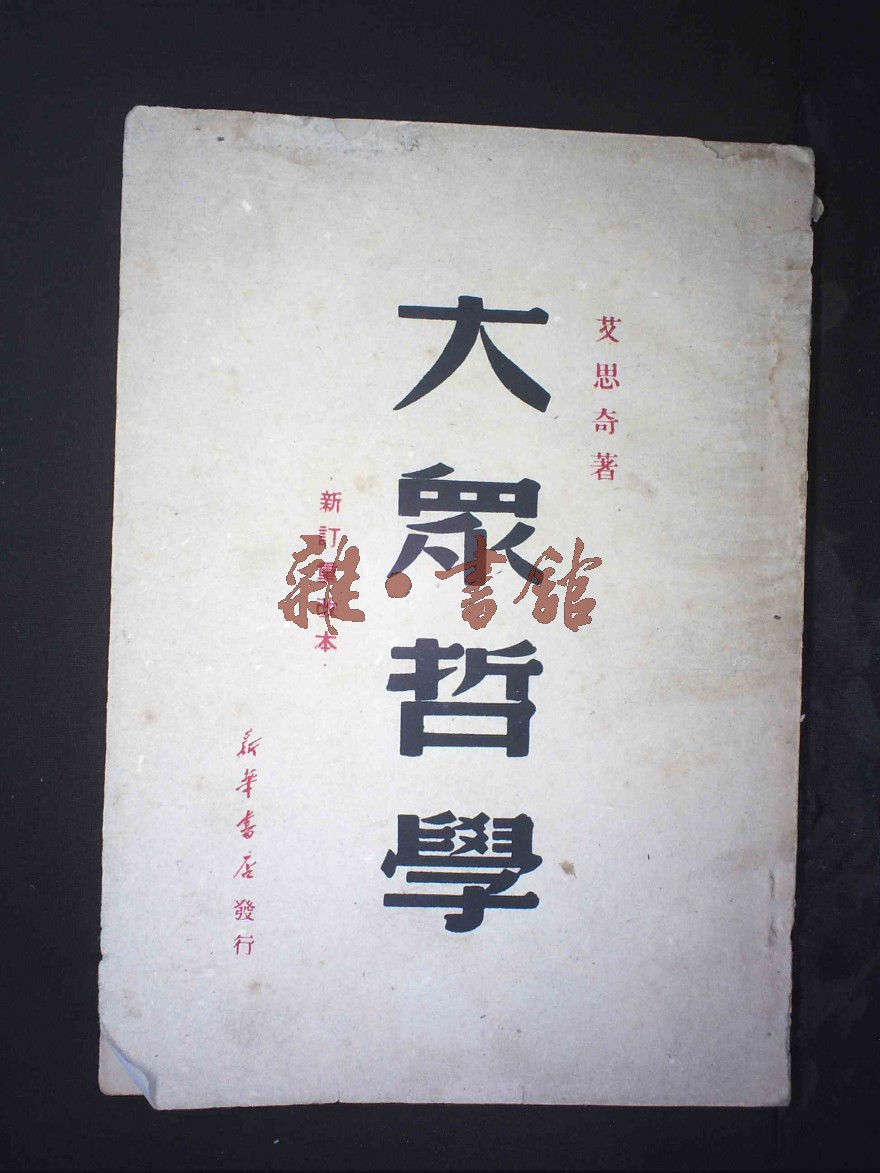 艾思奇著
大眾哲學
新訂重改本
新華書店發行
雜·書館